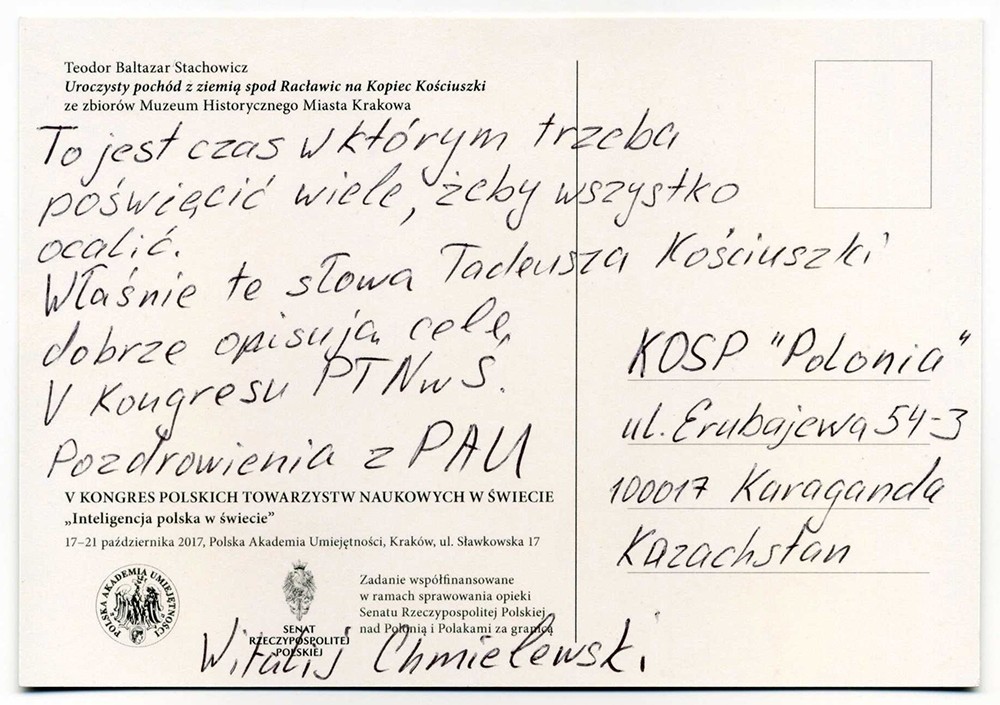 Teodor Baltazar Stachowicz
Uroczysty pochód z ziemią spod Racławic na Kopiec Kościuszki
ze zbiorów Muzeum Historycznego Miasta Krakowa
To jest czas w którym trzeba
poświęcić wiele, żeby wszystko
ocalić.
Właśnie te słowa Tadeusza Kościuszki
dobrze opisują celę
V Kongresu PTNwŚ.
Pozdrowienia z PAU
V KONGRES POLSKICH TOWARZYSTW NAUKOWYCH W ŚWIECIE
„Inteligencja polska w świecie”
17–21 października 2017, Polska Akademia Umiejętności, Kraków, ul. Sławkowska 17
POLSKA AKADEMIA UMIEJĘTNOŚCI
SENAT
RZECZYPOSPOLITEJ
POLSKIEJ
Zadanie współfinansowane
w ramach sprawowania opieki
Senatu Rzeczypospolitej Polskiej
nad Polonią i Polakami za granicą
Witalij Chmielewski
KOSP "Polonia"
ul. Erubajewa 54-3
100017 Karaganda
Kazachstan